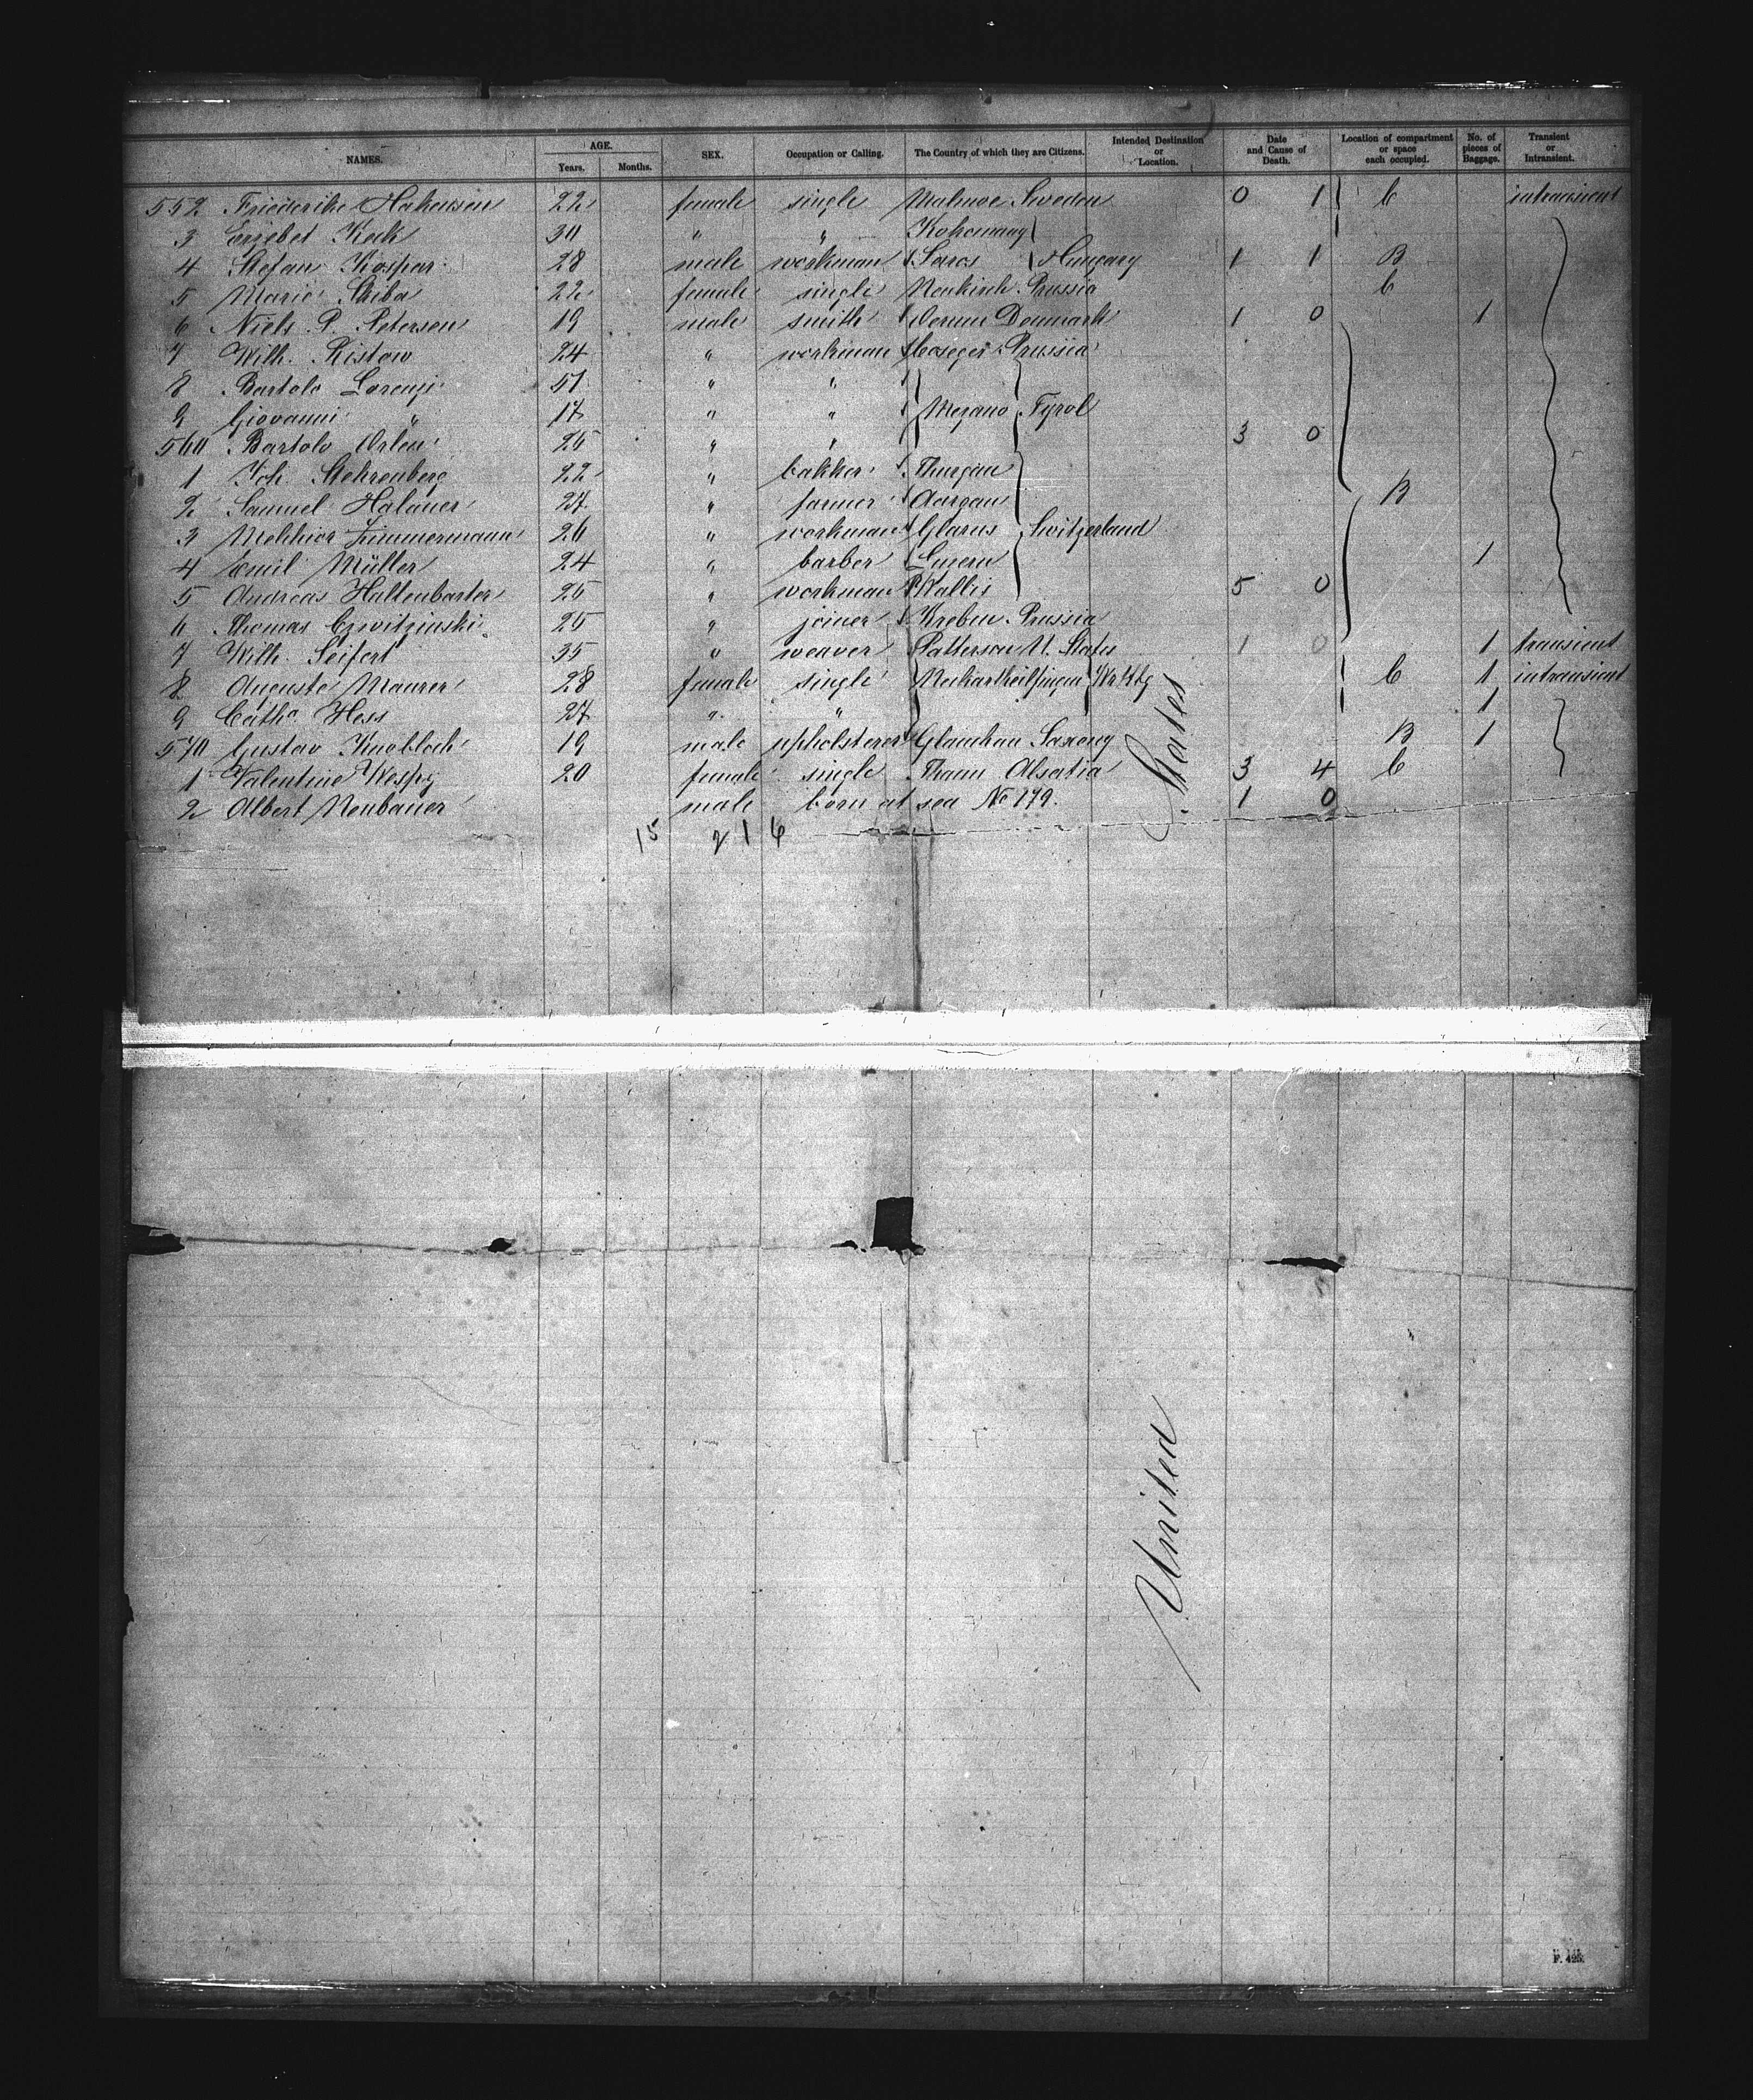 NAMES. AGE. Years. Months. SEX. Occupation or Calling. The Country of which they are Citizens. Intended Destination or Location. Date and Cause of Death. Location of compartment or space each occupied. No. of pieces of Baggage. Transient or Intransient.
552 Friederike Hakensen 22 female single Malmoe Sweden 0 1 C intransient
3 Erzebet Keck 30 " "
4 Stefan Kaspar 28 male workman Saros Hungary 1 1 B
5 Marie Skiba 22 female single Neukirch Prussia C
6 Niels P. Petersen 19 male smith Denmark 1 0 1
7 Wilh. Ristow 24 " workman Coseger Prussia
8 Bartolo Lorenzi 51 " "
9 Giovanni " 17 " " Mezano Tyrol
560 Bartolo Orlen 25 " " 3 0
1 Joh. Stehrenberg 22 " bakker Thurgau
2 Samuel Halauer 27 " farmer Aargau B
3 Melchior Zimmermann 26 " workman Glarus Switzerland
4 Emil Müller 24 " barber Luzern 1
5 Andreas Haltenbarter 25 " workman Wallis 5 0
6 Thomas Czwitzinski 25 " joiner Kreben Prussia
7 Wilh. Seifert 35 " weaver Patterson U. States 1 0 1 transient
8 Auguste Maurer 28 female single Neckartheilfingen Wrttbg C 1 intransient
9 Catha Hess 27 " " 1
570 Gustav Knobloch 19 male upholsterer Glauchau Saxony B 1
1 Valentine Wespy 20 female single Thann Alsatia 3 4 C
2 Albert Neubauer male born at sea No 179. 1 0
15 216
United States
F. 425.